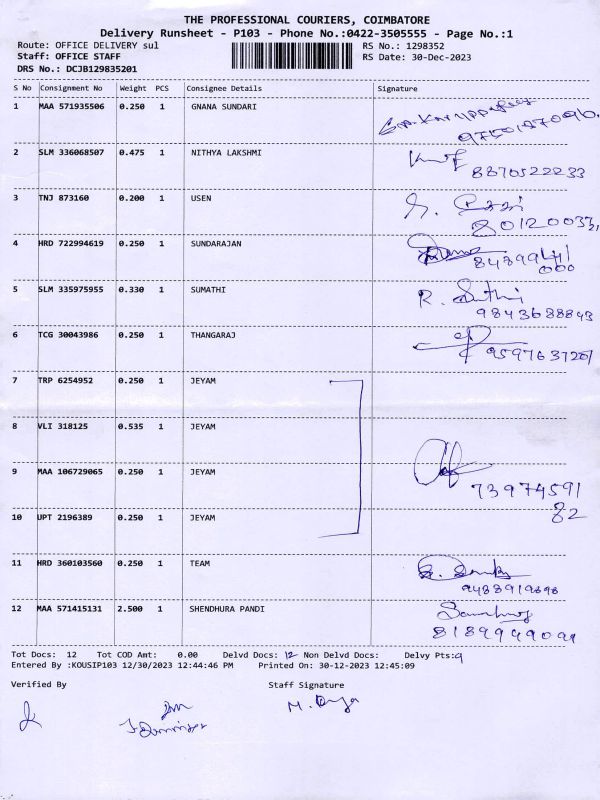 THE PROFESSIONAL COURIERS, COIMBATORE
Delivery Runsheet - P103 - Phone No.:0422-3505555 - Page No.:1
Route: OFFICE DELIVERY sul RS No.: 1298352
Staff: OFFICE STAFF RS Date: 30-Dec-2023
DRS No.: DCJB129835201
S No Consignment No Weight PCS Consignee Details Signature
1 MAA 571935506 0.250 1 GNANA SUNDARI
2 SLM 336068507 0.475 1 NITHYA LAKSHMI
8870522233
3 TNJ 873160 0.200 1 USEN
4 HRD 722994619 0.250 1 SUNDARAJAN
5 SLM 335975955 0.330 1 SUMATHI R.
9843688843
6 TCG 30043986 0.250 1 THANGARAJ
9597637201
7 TRP 6254952 0.250 1 JEYAM
8 VLI 318125 0.535 1 JEYAM
9 MAA 106729065 0.250 1 JEYAM
73974591
10 UPT 2196389 0.250 1 JEYAM 82
11 HRD 360103560 0.250 1 TEAM
12 MAA 571415131 2.500 1 SHENDHURA PANDI
Tot Docs: 12 Tot COD Amt: 0.00 Delvd Docs: 12 Non Delvd Docs: Delvy Pts:9
Entered By :KOUSIP103 12/30/2023 12:44:46 PM Printed On: 30-12-2023 12:45:09
Verified By Staff Signature